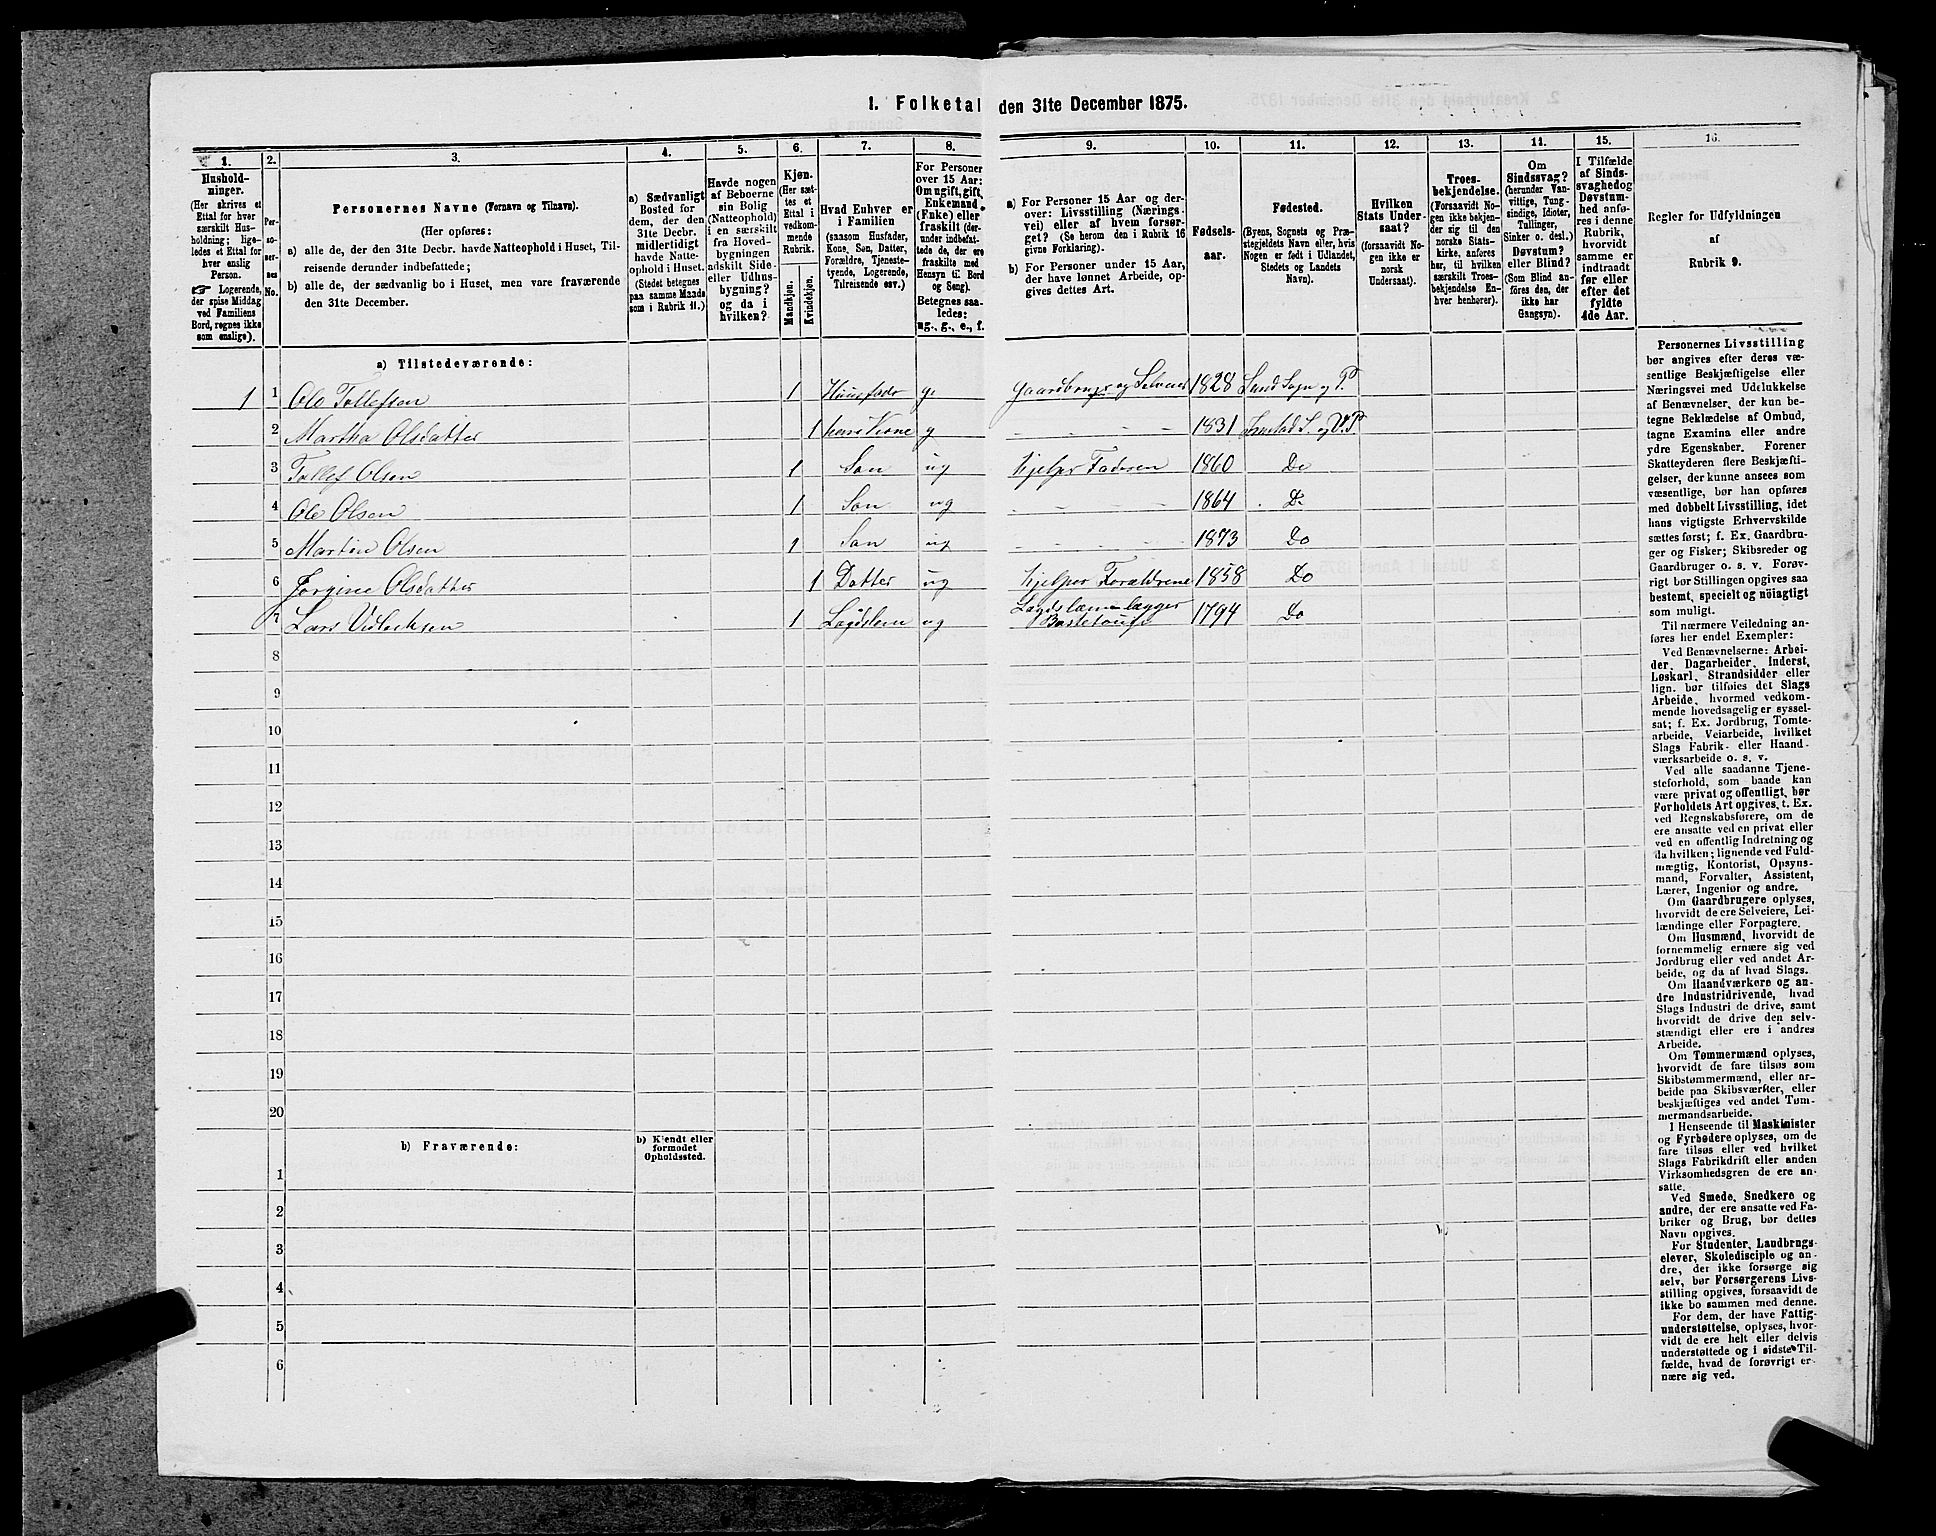 1. Folketal den 31te December 1875.
1.
Hushold-
ninger.
(Her skrives et
Ettal for hver
særskilt Hus-
holdning; lige-
ledes et Ettal for
hver enslig
Person.
☞ Logerende,
der spise Middag
ved Familiens
Bord, regnes ikke
som enslige).
2.
Per-
so-
ner-
nes
No.
3.
Personernes Navne (Fornavn og Tilnavn).
(Her opføres:
a) alle de, der den 31te Decbr. havde Natteophold i Huset, Til-
reisende derunder indbefattede;
b) alle de, der sædvanlig bo i Huset, men vare fraværende
den 31te December.
4.
a) Sædvanligt
Bosted for
dem, der den
31te Decbr.
midlertidigt
havde Natte-
ophold i Huset.
(Stedet betegnes
paa samme Maade
som i Rubrik 11.)
5.
Havde nogen
af Beboerne
sin Bolig
(Natteophold)
i en særskilt
fra Hoved-
bygningen
adskilt Side-
eller Udhus-
bygning?
og da i
hvilken?
6.
Kjøn.
(Her sæt-
tes et
Ettal i
vedkom-
mende
Rubrik.
Mandkjøn.
Kvindekjøn.
7.
Hvad Enhver er
i Familien
(saasom Husfader,
Kone, Søn, Datter,
Forældre, Tjeneste-
tyende, Logerende,
Tilreisende osv.)
8.
For Personer
over 15 Aar:
Om ugift, gift,
Enkemand
(Enke) eller
fraskilt (der-
under indbefat-
tede de, der ere
fraskilte med
Hensyn til Bord
og Seng).
Betegnes saa-
ledes:
ug., g., e., f.
9.
a) For Personer 15 Aar og der-
over: Livsstilling (Nærings-
vei) eller af hvem forsør-
get? (Se herom den i Rubrik 16
givne Forklaring).
b) For Personer under 15 Aar,
der have lønnet Arbeide, op-
gives dettes Art.
10.
Fødsels-
aar.
11.
Fødested.
(Byens, Sognets og Præ-
stegjeldets Navn eller, hvis
Nogen er født i Udlandet,
Stedets og Landets
Navn).
12.
Hvilken
Stats Under-
saat?
(forsaavidt No-
gen ikke er
norsk
Undersaat).
13.
Troes-
bekjendelse.
(Forsaavidt No-
gen ikke bekjen-
der sig til den
norske Stats-
kirke, anføres
her, til hvilken
særskilt Troes-
bekjendelse En-
hver henhører).
14.
Om
Sindssvag?
(herunder Van-
vittige, Tung-
sindige, Idioter,
Tullinger,
Sinker o. desl.)
Døvstum?
eller Blind?
(Som Blind an-
føres den, der
ikke har
Gangsyn).
15.
I Tilfælde
af Sinds-
svaghed og
Døvstum-
hed anfø-
res i denne
Rubrik,
hvorvidt
samme er
indtraadt
før eller
efter det
fyldte
4de Aar.
16.
Regler for Udfyldningen
af
Rubrik 9.
a) Tilstedeværende:
1 1 Ole Tollefsen 1 Huusfader g. Gaardbruger og Selveier 1828 Sund Sogn og P.
2 Martha Olsdatter 1 hans Kone g - - - 1831 S. og P.
3 Tollef Olsen 1 Søn ug Hjelper Faderen 1860 Do
4 Ole Olsen 1 Søn ug - - - 1864 Do
5 Martin Olsen 1 Søn ug - - - 1873 Do
6 Jorgine Olsdatter 1 Datter ug Hjelper Forældrene 1858 Do
7 Lars 1 Lægdslem ug 1794 Do
8
9
10
11
12
13
14
15
16
17
18
19
20
b) Fraværende:
b) Kjendt eller
formodet
Opholdssted.
1
2
3
4
5
6
Personernes Livsstilling
bør angives efter deres væ-
sentlige Beskjæftigelse eller
Næringsvei med Udelukkelse
af Benævnelser, der kun be-
tegne Beklædelse af Ombud,
tagne Examina eller andre
ydre Egenskaber. Forener
Skatteyderen flere Beskjæfti-
gelser, der kunne ansees som
væsentlige, bør han opføres
med dobbelt Livsstilling, idet
hans vigtigste Erhvervskilde
sættes først; f. Ex. Gaardbru-
ger og Fisker; Skibsreder og
Gaardbruger o. s. v. Forøv-
rigt bør Stillingen opgives saa
bestemt, specielt og nøiagtigt
som muligt.
Til nærmere Veiledning an-
føres her endel Exempler:
Ved Benævnelserne: Arbei-
der, Dagarbeider, Inderst,
Løskarl, Strandsidder eller
lign. bør tilføies det Slags
Arbeide, hvormed vedkom-
mende hovedsagelig er syssel-
sat; f. Ex. Jordbrug, Tomte-
arbeide, Veiarbeide, hvilket
Slags Fabrik- eller Haand-
værksarbeide o. s. v.
Ved alle saadanne Tjene-
steforhold, som baade kan
være privat og offentligt, bør
Forholdets Art opgives, t. Ex.
ved Regnskabsførere, om de
ere ansatte ved en privat eller
ved en offentlig Indretning og
da hvilken; lignende ved Fuld-
mægtig, Kontorist, Opsyns-
mand, Forvalter, Assistent,
Lærer, Ingeniør og andre.
Om Gaardbrugere oplyses,
hvorvidt de ere Selveiere, Lei-
lændinge eller Forpagtere.
Om Husmænd, hvorvidt de
fornemmelig ernære sig ved
Jordbrug eller ved andet Ar-
beide, og da af hvad Slags.
Om Haandværkere og an-
dre Industridrivende, hvad
Slags Industri de drive, samt
hvorvidt de drive den selv-
stændigt eller ere i andres
Arbeide.
Om Tømmermænd oplyses,
hvorvidt de fare tilsøs som
Skibstømmermænd, eller ar-
beide paa Skibsværfter, eller
beskjæftiges ved andet Tøm-
mermandsarbeide.
I Henseende til Maskinister
og Fyrbødere oplyses, om de
fare tilsøs eller ved hvilket
Slags Fabrikdrift eller anden
Virksomhedsgren de ere an-
satte.
Ved Smede, Snedkere og
andre, der ere ansatte ved Fa-
briker og Brug, bør dettes
Navn opgives.
For Studenter, Landbrugs-
elever, Skoledisciple og an-
dre, der ikke forsørge sig
selv, bør Forsørgerens Livs-
stilling opgives, forsaavidt de
ikke bo sammen med denne.
For dem, der have Fattig-
understøttelse, oplyses, hvor-
vidt de ere helt eller delvis
understøttede og i sidste Til-
fælde, hvad de forøvrigt er-
nære sig ved.